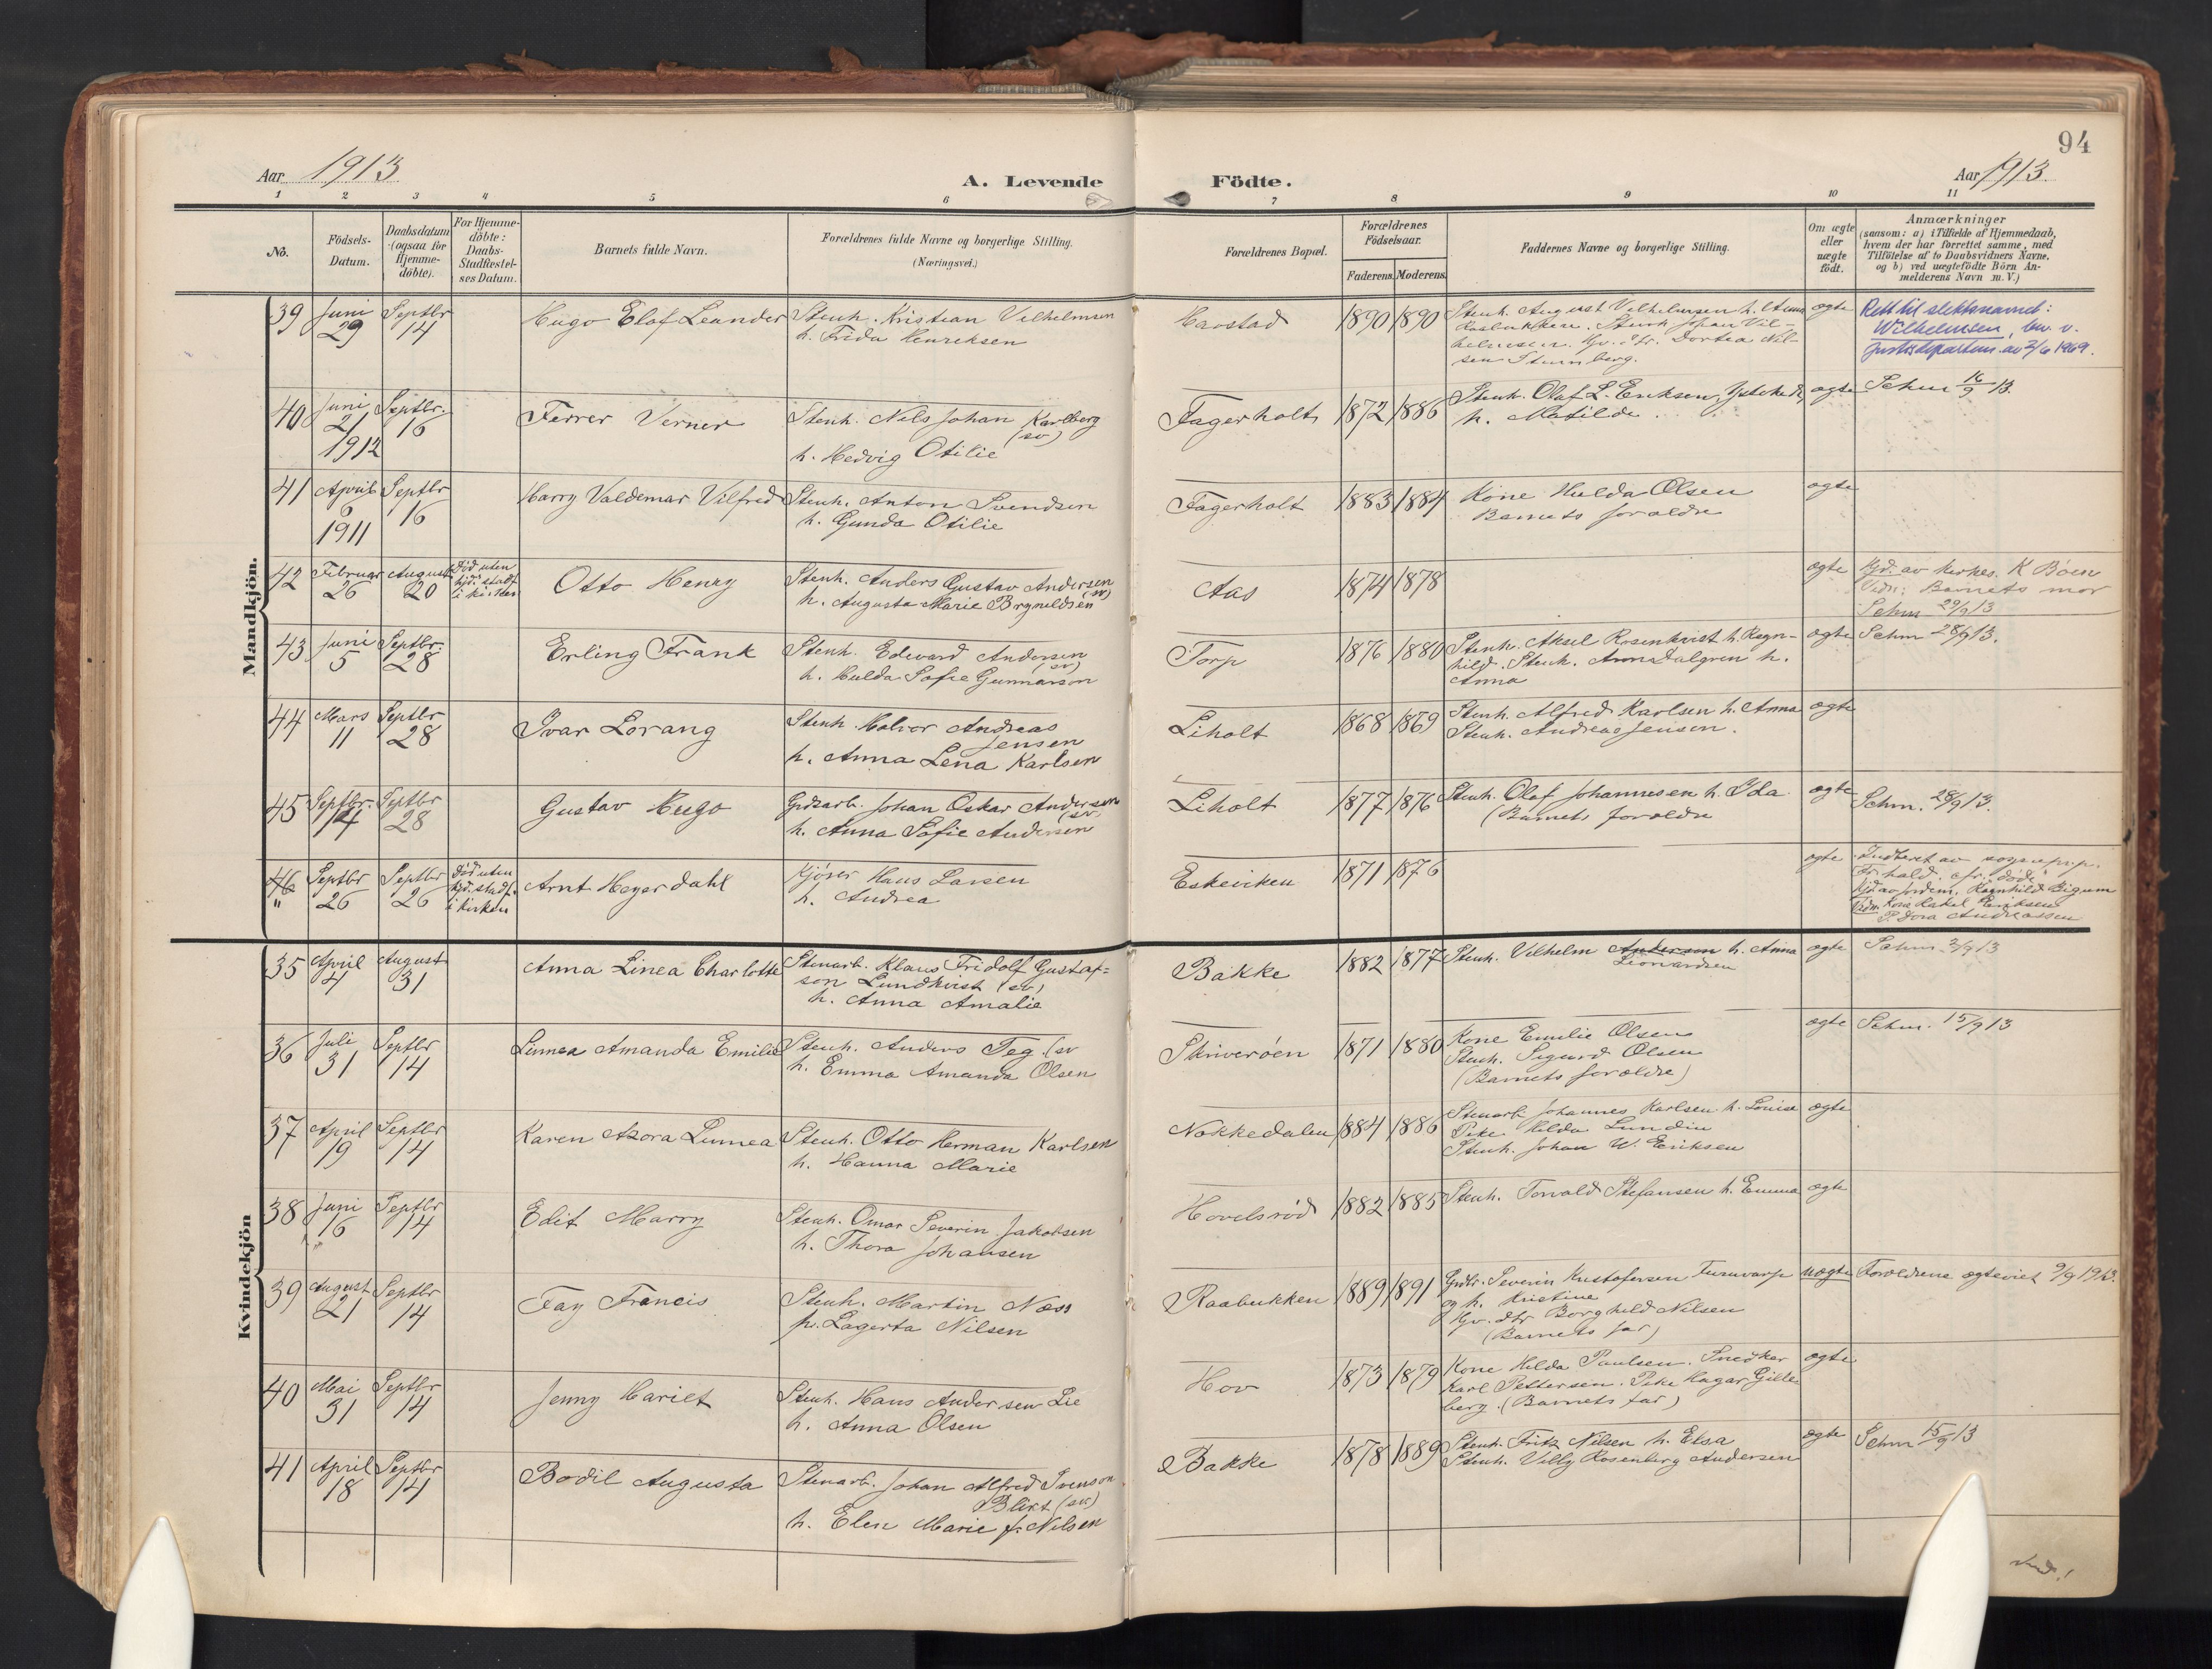 94
Aar 1913
A. Levende
Födte.
Aar 1913.
1 2 3 4 5 6 7 8 9 10 11
No.
Födsels-
Datum.
Daabsdatum
(ogsaa for
Hjemme-
döbte).
For Hjemme-
döbte:
Daabs-
Stadfæstel-
ses Datum.
Barnets fulde Navn.
Forældrenes fulde Navne og borgerlige Stilling.
(Næringsvei.)
Forældrenes Bopæl.
Forældrenes
Födselsaar.
Faderens. Moderens.
Faddernes Navne og borgerlige Stilling.
Om ægte
eller
uægte
födt.
Anmærkninger
(saasom: a) i Tilfælde af Hjemmedaab,
hvem der har forrettet samme, med
Tilföielse af to Daabsvidners Navne.
og b) ved uægtefödte Börn An-
melderens Navn m. V.)
Mandkjön.
39 Juni 29 Septbr 14
Hugo Elof Leander
Stenh. Kristian Vilhelmsen
h. Frida Henriksen
Havstad 1890 1890
Stenh. August Vilhelmsen h. Anna
Stenh Johan Vil-
helmsen. Dortea Nil-
sen
ægte
Rett til slektsnavnet:
Wilhelmsen, bev. v.
Justisdepartem. av 3/6 1969.
40 Juni 21 1912 Septbr. 16
Ferrer Verner
Stenh. Nils Johan Karlberg
(sv)
h. Hedvig Otilie
Fagerholt 1872 1886
Stenh. Olaf L. Eriksen,
h. Matilde.
ægte
Schm 16/9 13.
41 April 6 1911 Septbr 16
Harry Valdemar Vilfred
Stenh. Anton Svendsen
h. Gunda Otilie
Fagerholt 1883 1884
Kone Hulda Olsen
Barnets forældre
ægte
42 Februar 26 August 20
Död uten
hjd. stadf.
i kirken
Otto Henry
Stenh. Anders Gustav Andersen
(sv)
h. Augusta Marie Brynildsen
Aas 1874 1878
ægte
Hjd. av kirkes. K Böen
Vidn: Barnets mor
Schm 29/9 13
43 Juni 5 Septbr. 28
Erling Frank
Stenh. Edevard Andersen
(sv)
h. Hulda Sofie Gunnarson
Torp 1876 1880
Stenh. Aksel Rosenkvist h. Ragn-
hild. Stenh. Dalgren h.
Anna
ægte
Schm 28/9 13.
44 Mars 11 Septbr 28
Ivar Lorang
Stenh. Halvor Andreas
Jensen
h. Anna Lena Karlsen
Liholt 1868 1869
Stenh. Alfred Karlsen h. Anna
Stenh. Andreas Jensen.
ægte
45 Septbr. 14 Septbr 28
Gustav Hugo
Grdsarb. Johan Oskar Andersen
(sv)
h. Anna Sofie Andersen
Liholt 1877 1876
Stenh. Olaf Johannesen h. Ida
(Barnets forældre
ægte
Schm. 28/9 13.
46 " Septbr 26 Septbr 26
Död uten
hjd. stadf.
i kirken
Arnt Heyerdahl
Kjører Hans Larsen
h. Andrea
Eskeviken 1871 1876
ægte
Indført av sognepr.
Fr.hald. cfr. döde
Hjd av jordem. Ragnhild Bigum
Vidn. Kone Rakel Eriksen
P. Dora Andreassen
Kvindekjön
35 April 4 August 31
Anna Linea Charlotte
Stenarb. Klaus Fridolf Gustaf-
son Lundkvist (sv)
h. Anna Amalie
Bakke 1882 1877
Stenh. Vilhelm Andersen h. Anna
Leonardsen
ægte
Schm 2/9 13
36 Juli 31 Septbr 14
Linnea Amanda Emilie
Stenh. Anders Teg (sv
h. Emma Amanda Olsen
Skriverøen 1871 1880
Kone Emilie Olsen
Stenh. Sigurd Olsen
(Barnets forældre)
ægte
Schm. 15/9 13
37 April 19 Septbr 14
Karen Azora Linnea
Stenh. Otto Herman Karlsen
h. Hanna Marie
Nokkedalen 1884 1886
Stenarb Johannes Karlsen h. Louise
Pike Hilda Lundin
Stenh. Johan W. Eriksen
ægte
38 Juni 16 Septbr 14
Edit Marry
Stenh. Omar Severin Jakobsen
h. Thora Johansen
Hovelsrød 1882 1885
Stenh. Torvald Stefansen h. Emma
ægte
39 August 21 Septbr 14
Fay Francis
Stenh. Martin Næss
p. Lagerta Nilsen
Raabukken 1889 1891
Grdbr. Severin Kristofersen
og h. Kristine
Gjv. dtr Borghild Nilsen
(Barnets far)
uægte
Forældrene ægteviet 9/9 1913.
40 Mai 31 Septbr 14
Jenny Hariet
Stenh. Hans Andersen Lie
h. Anna Olsen
Hov 1873 1879
Kone Hilda Paulsen. Snedker
Karl Pettersen. Pike Hagar Gille-
berg. (Barnets far)
ægte
41 April 18 Septbr 14
Bodil Augusta
Stenarb. Johan Alfred Svenson
Blixt (sv)
h. Elen Marie f. Nilsen
Bakke 1878 1889
Stenh. Fritz Nilsen h. Elsa
Stenh. Villy Rosenberg Andersen
ægte
Schm 15/9 13
Vend!